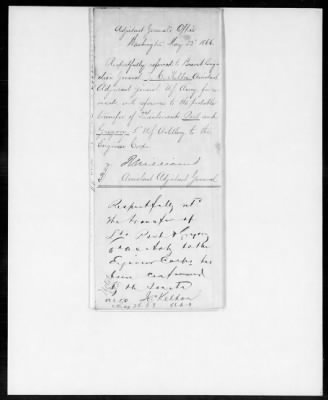 Adjutant General's Office
Washington May 23" 1866.
Respectfully referred to Brevet Briga-
dier General J. C. Kelton Assistant
Adjutant General U.S. Army for re-
mark with reference to the probable
transfer of Lieutenants Post and
Gregory 5" U.S. Artillery to the
Engineer Corps.
R Williams
Assistant Adjutant General
Respectfully
the transfer of
Lts. Post & Gregory
Arty to the
Engineer Corps has
been confirmed
by the Senate
J C Kelton